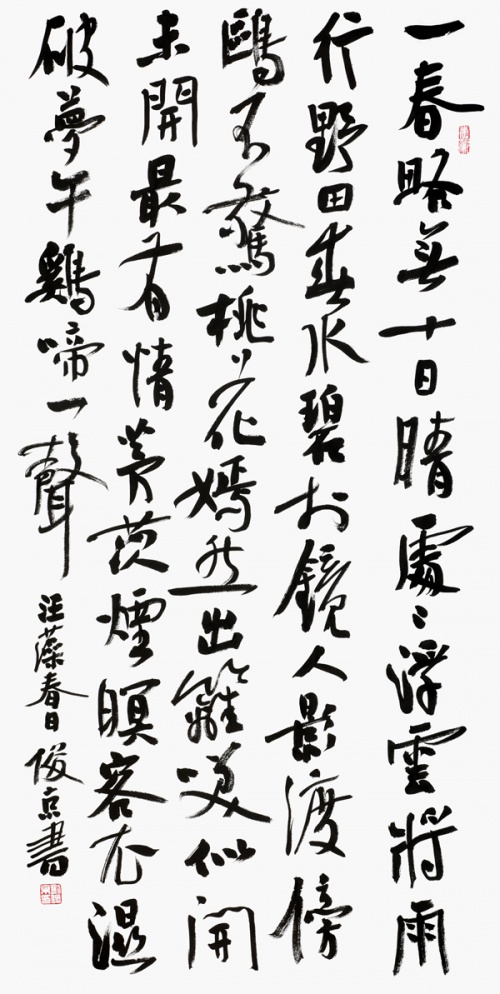 一春略無十日晴處〻浮雲將雨
行野田春水碧於鏡人影渡傍
鷗不驚桃花嫣然出籬咲似開
未開最有情茅茨煙暝客衣濕
破夢午鷄啼一聲
汪藻春日 俊京書